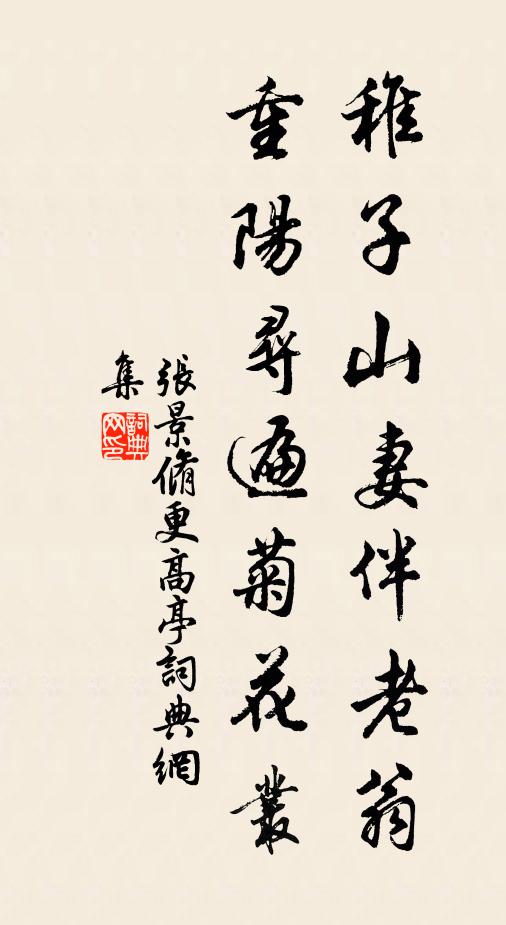 稚子山妻伴老翁
重陽尋遍菊花叢
張景脩更高亭詞典網
集
詞典網印